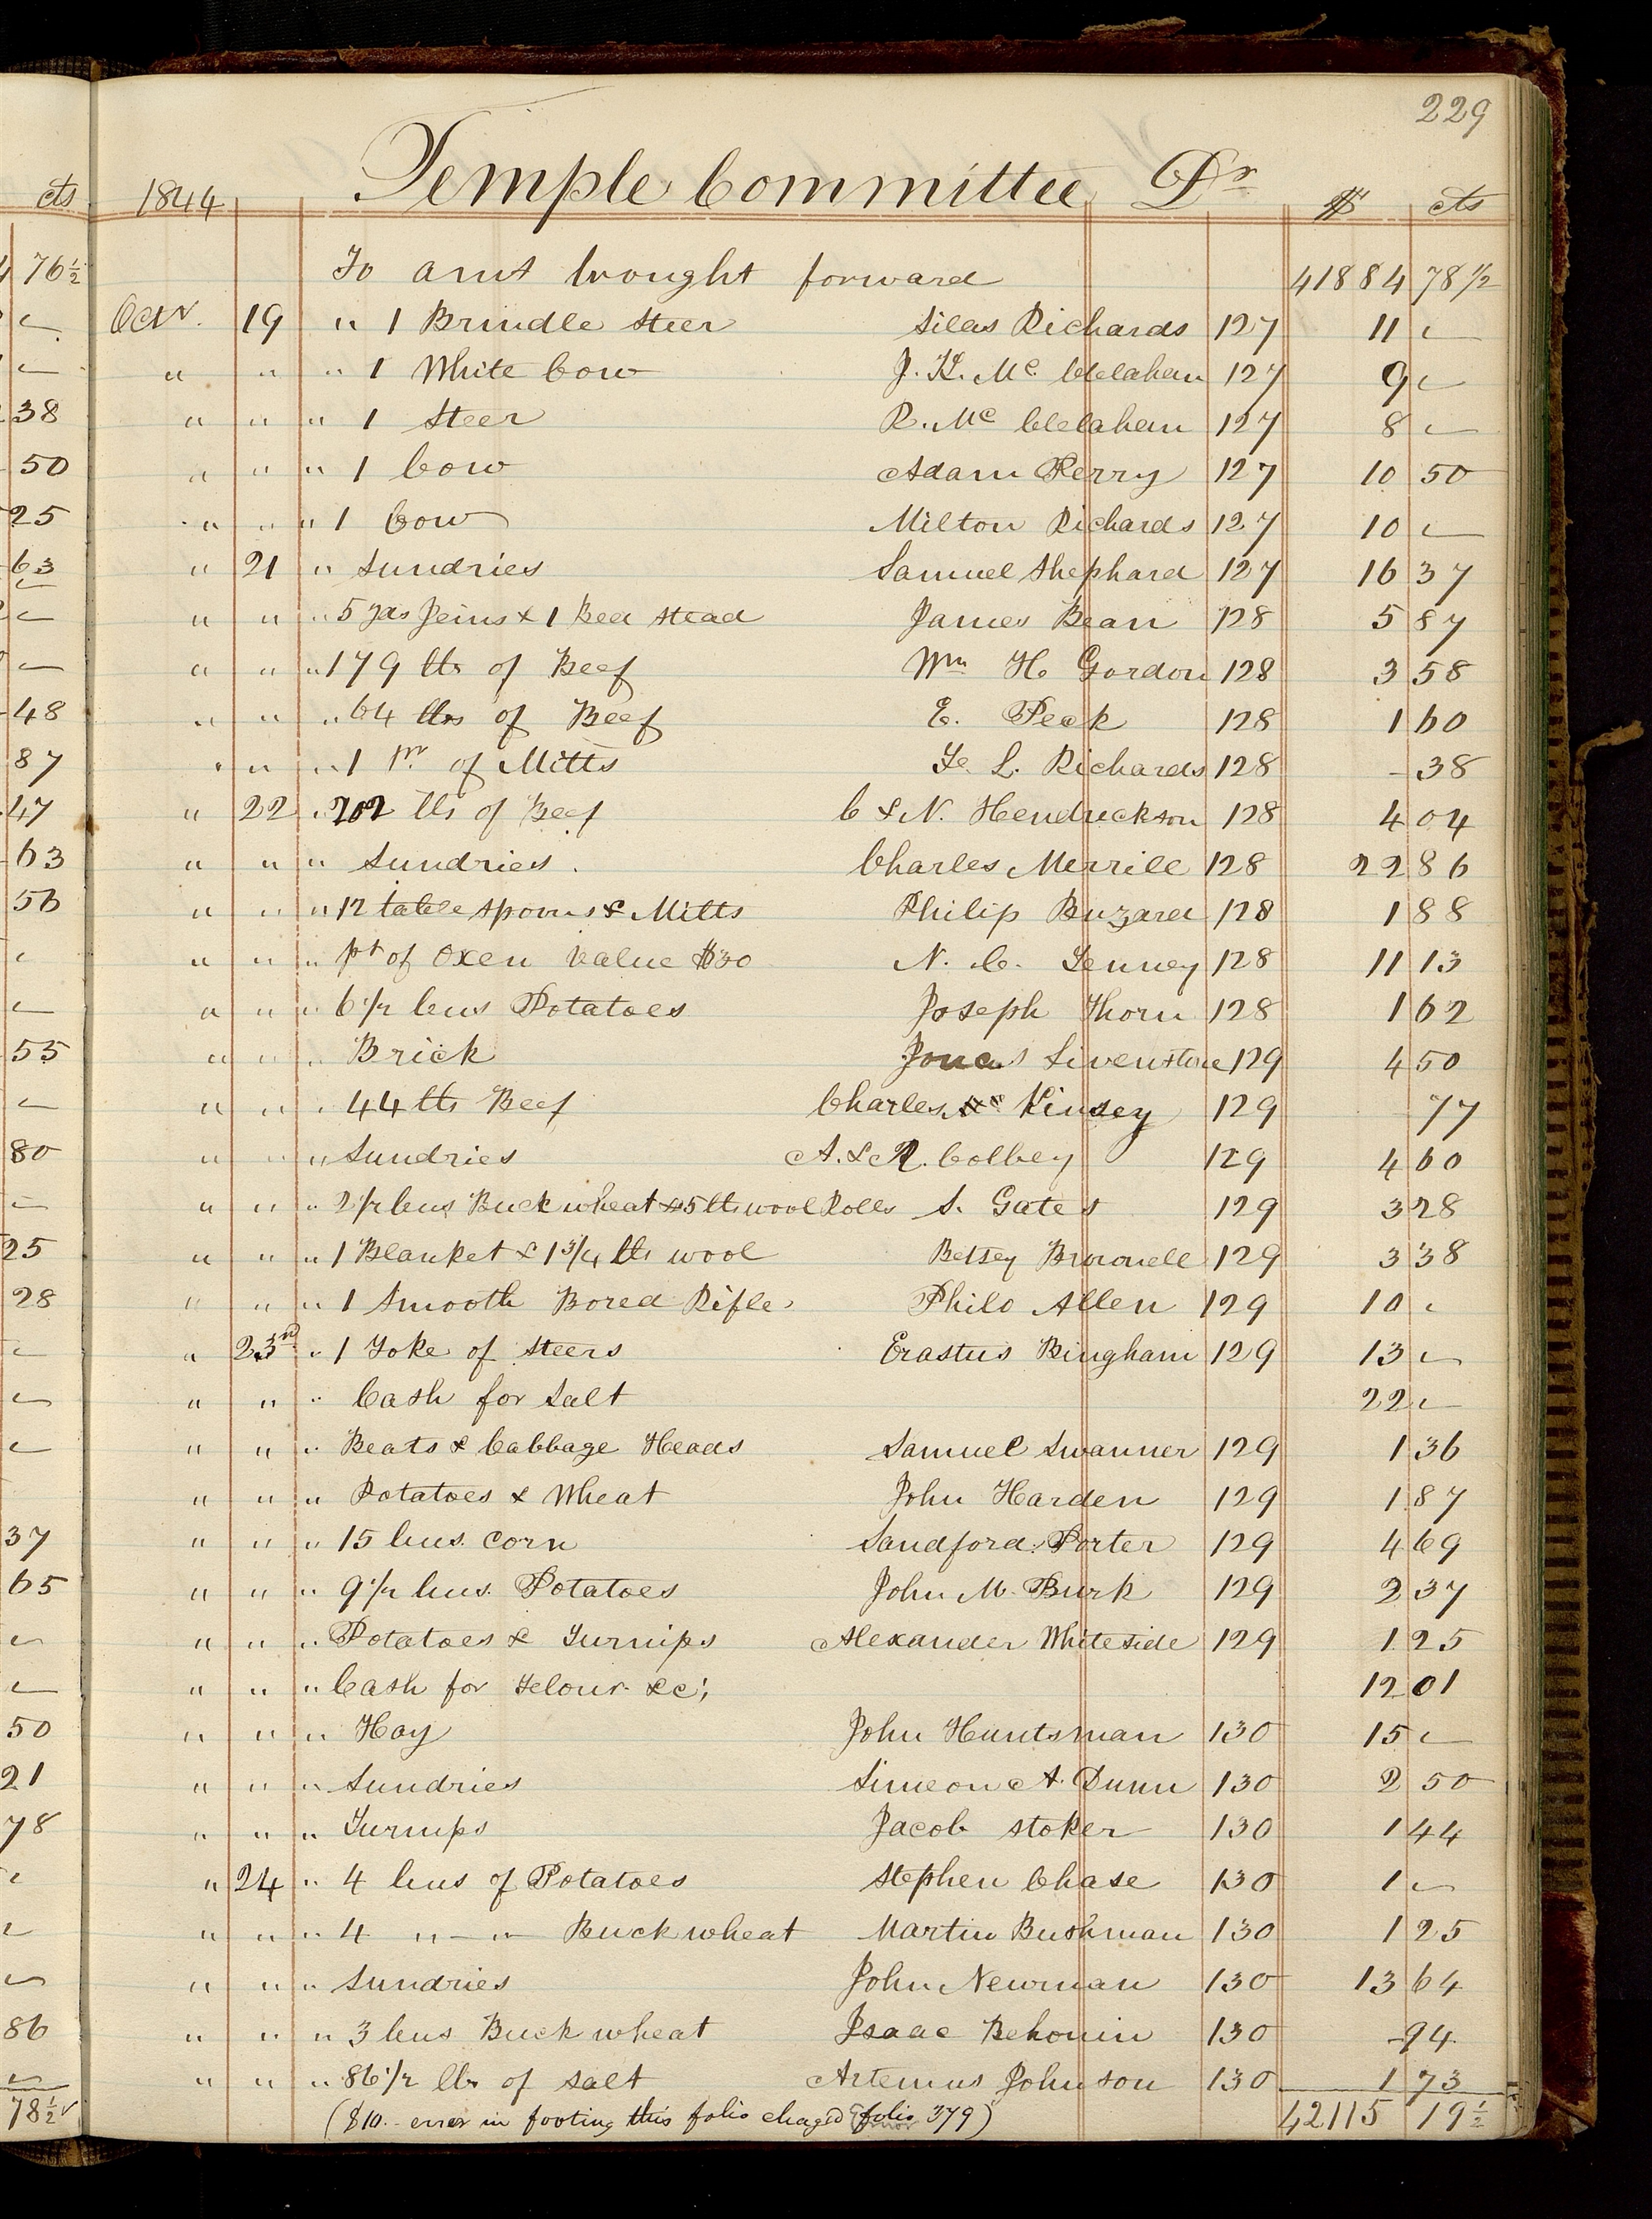 229
cts 1844 Temple Committee Dr $ cts
76½ To amt brought forward 41884 78½
Octr. 19 " 1 Brindle Steer Silas Richards 127 11 —
" " " 1 White Cow J. K. Mc. Clelahan 127 9 —
38 " " " 1 Steer R. Mc Clelahan 127 8 —
50 " " " 1 Cow Adam Perry 127 10 50
25 " " " 1 Cow Milton Richards 127 10 —
63 " 21 " Sundries Samuel Shephard 127 16 37
— " " " 5 yds Jeins & 1 Bed Stead James Bean 128 5 87
— " " " 179 lbs of Beef Wm H Gordon 128 3 58
48 " " " 64 lbs of Beef E. Peck 128 1 60
87 " " " 1 pr. of Mitts F. L. Richards 128 - 38
47 " 22 " 202 lbs of Beef C & N. Hendrickson 128 4 04
63 " " " Sundries. Charles Merrill 128 22 86
56 " " " 12 table spoons & Mitts Philip Buzard 128 1 88
— " " " pt of Oxen value $30 N. C. Tenney 128 11 13
— " " " 6 1/2 bus Potatoes Joseph Thorn 128 1 62
55 " " " Brick Jonas Livenstone 129 4 50
— " " " 44 lbs Beef Charles Kinsey 129 77
80 " " " Sundries A. & R. Colbey 129 4 60
— " " " 2 1/2 bus Buckwheat & 5 lbs wool Rolls S. Gates 129 3 28
25 " " " 1 Blanket & 1 3/4 lbs wool Betsey Brownell 129 3 38
28 " " " 1 Smooth Bored Rifle Philo Allen 129 10 —
— " 23rd " 1 Yoke of Steers Erastus Bingham 129 13 —
— " " " Cash for Salt 22 —
— " " " Beats & Cabbage Heads Samuel Swanner 129 1 36
" " " Potatoes & Wheat John Harden 129 1 87
37 " " " 15 bus. Corn Sandford Porter 129 4 69
65 " " " 9 1/2 bus. Potatoes John M. Burk 129 2 37
— " " " Potatoes & Turnips Alexander Whiteside 129 1 25
— " " " Cash for Flour &c; 12 01
50 " " " Hay John Huntsman 130 15 —
21 " " " Sundries Simeon A. Dunn 130 2 50
78 " " " Turnips Jacob Stoker 130 1 44
— " 24 " 4 bus of Potatoes Stephen Chase 130 1 —
— " " " 4 " - " Buckwheat Martin Bushman 130 1 25
— " " " Sundries John Newman 130 13 64
86 " " " 3 bus Buckwheat Isaac Behonin 130 - 94
— " " " 86 1/2 lbs of Salt Artemus Johnson 130 1 73
78½ ($10.- error in footing this folio chaged folio 379) 42115 19½